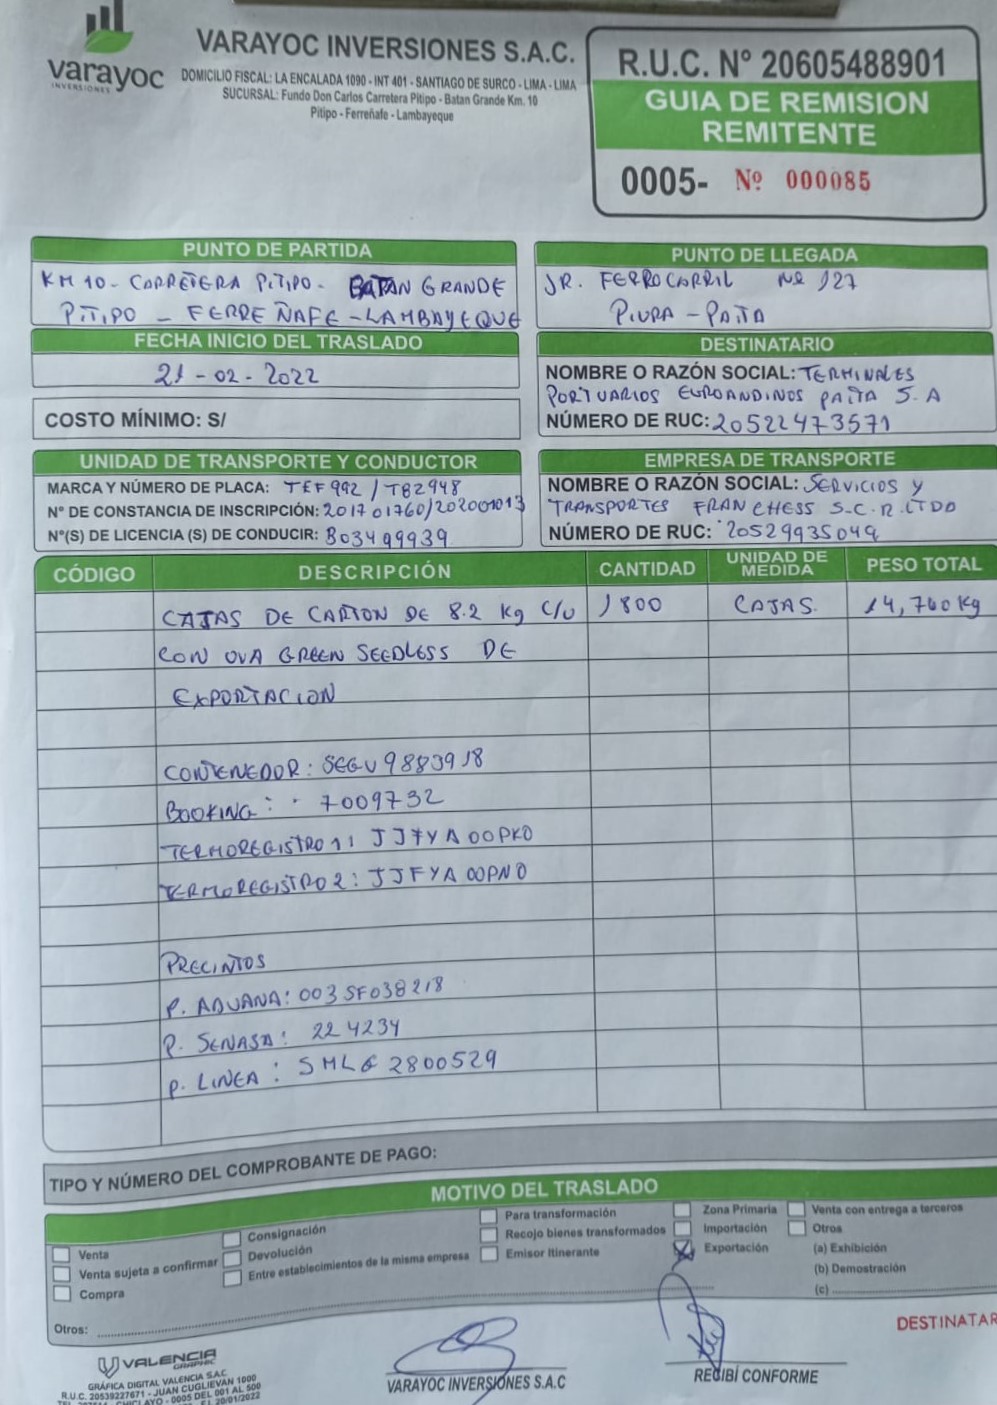 varayoc
INVERSIONES
VARAYOC INVERSIONES S.A.C.
DOMICILIO FISCAL: LA ENCALADA 1090 - INT 401 - SANTIAGO DE SURCO - LIMA - LIMA
SUCURSAL: Fundo Don Carlos Carretera Pitipo - Batan Grande Km. 10
Pitipo - Ferreñafe - Lambayeque
R.U.C. Nº 20605488901
GUIA DE REMISION
REMITENTE
0005- Nº 000085
PUNTO DE PARTIDA
KM 10 - CARRETERA PITIPO - BATAN GRANDE
PITIPO - FERREÑAFE - LAMBAYEQUE
PUNTO DE LLEGADA
JR. FERROCARRIL Nº 127
PIURA - PAITA
FECHA INICIO DEL TRASLADO
21 - 02 - 2022
COSTO MÍNIMO: S/
DESTINATARIO
NOMBRE O RAZÓN SOCIAL: TERMINALES
PORTUARIOS EUROANDINOS PAITA S.A
NÚMERO DE RUC: 20522473571
UNIDAD DE TRANSPORTE Y CONDUCTOR
MARCA Y NÚMERO DE PLACA: TEF992 / TB2948
N° DE CONSTANCIA DE INSCRIPCIÓN: 201701760/202001013
N°(S) DE LICENCIA (S) DE CONDUCIR: B03499939
EMPRESA DE TRANSPORTE
NOMBRE O RAZÓN SOCIAL: SERVICIOS Y
TRANSPORTES FRANCHESS S.C.R.LTDO
NÚMERO DE RUC: 20529935049
CÓDIGO DESCRIPCIÓN CANTIDAD UNIDAD DE MEDIDA PESO TOTAL
CAJAS DE CARTON DE 8.2 Kg C/U 1800 CAJAS. 14,760 Kg
CON UVA GREEN SEEDLESS DE
EXPORTACION
CONTENEDOR: SEGU 9883918
BOOKING: 7009732
TERMOREGISTRO 1: JJFYA00PK0
TERMOREGISTRO 2: JJFYA00PN0
PRECINTOS
P. ADUANA: 003SF038218
P. SENASA: 224234
P. LINEA: SMLG 2800529
TIPO Y NÚMERO DEL COMPROBANTE DE PAGO:
MOTIVO DEL TRASLADO
Venta
Venta sujeta a confirmar
Compra
Consignación
Devolución
Entre establecimientos de la misma empresa
Para transformación
Recojo bienes transformados
Emisor Itinerante
Zona Primaria
Importación
Exportación
Venta con entrega a terceros
Otros
(a) Exhibición
(b) Demostración
(c)
Otros:
DESTINATAR
VALENCIA
GRAPHIC
GRÁFICA DIGITAL VALENCIA S.A.C.
R.U.C. 20539227671 - JUAN CUGLIEVAN 1000
CHICLAYO - 0005 DEL 001 AL 500
20/01/2022
VARAYOC INVERSIONES S.A.C
RECIBÍ CONFORME